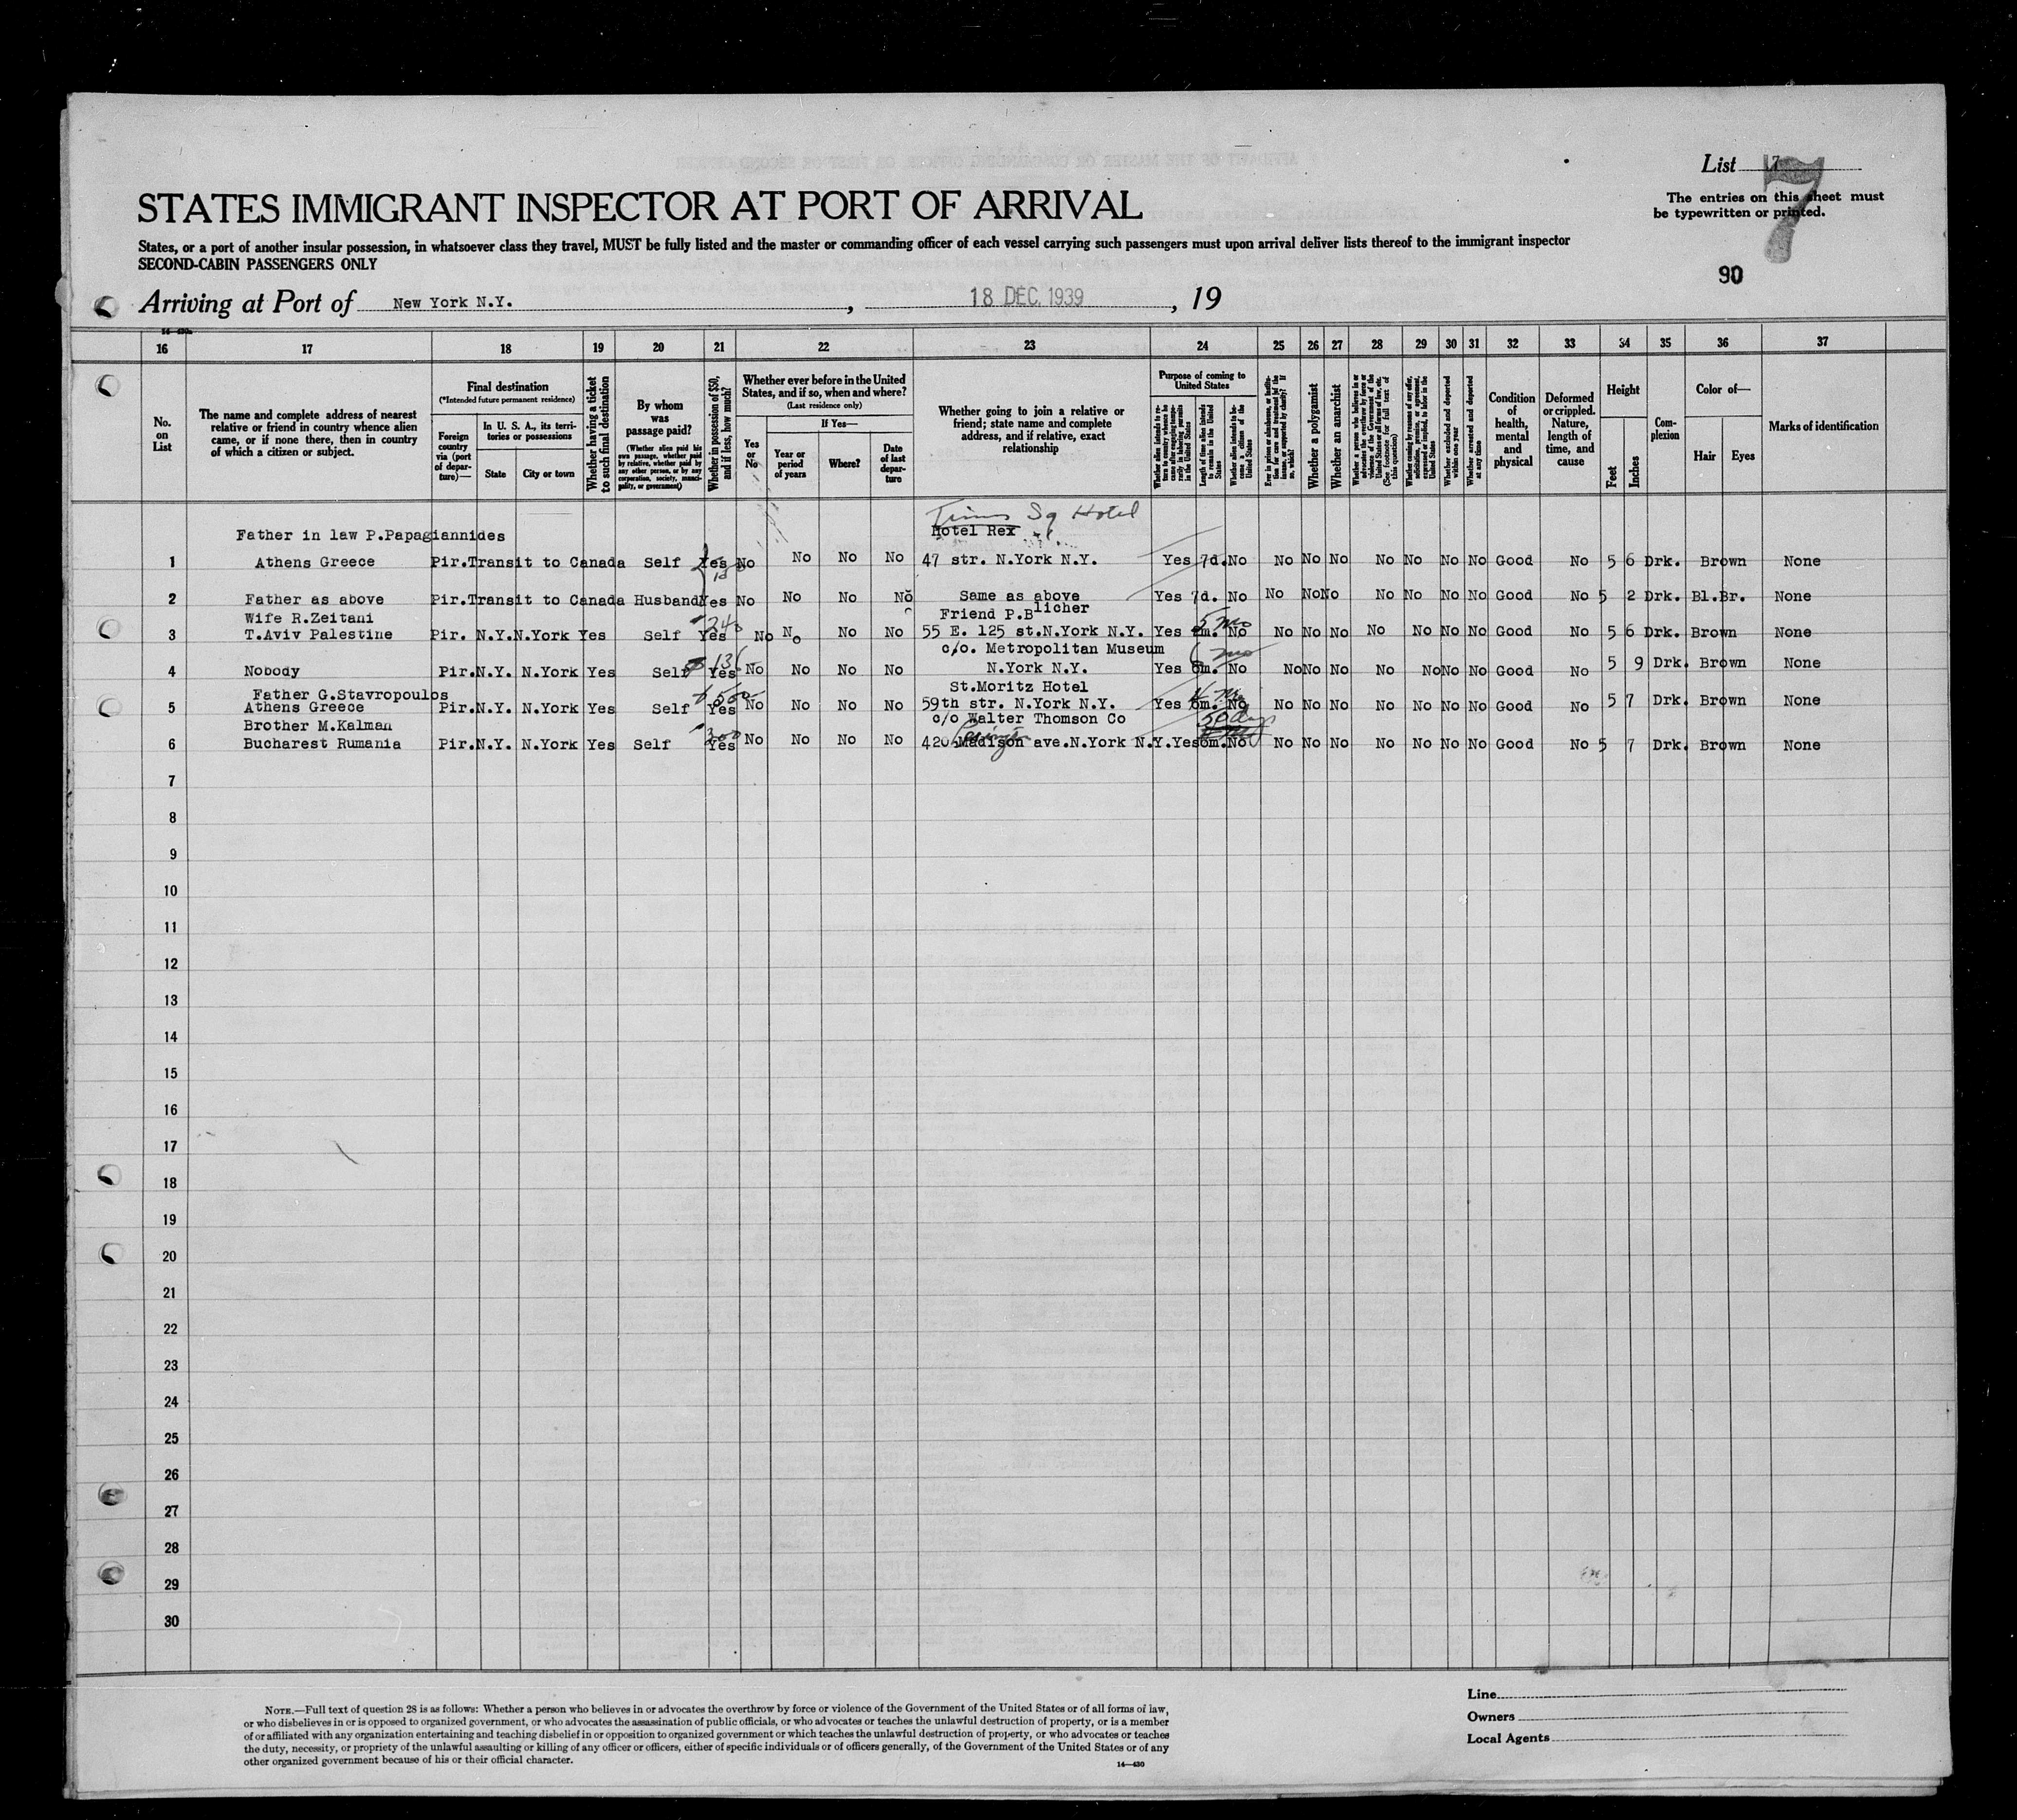 List 17
7
The entries on this sheet must
be typewritten or printed.
STATES IMMIGRANT INSPECTOR AT PORT OF ARRIVAL
States, or a port of another insular possession, in whatsoever class they travel, MUST be fully listed and the master or commanding officer of each vessel carrying such passengers must upon arrival deliver lists thereof to the immigrant inspector
SECOND-CABIN PASSENGERS ONLY
90
Arriving at Port of New York N.Y. , 18 DEC. 1939 , 19
16 17 18 19 20 21 22 23 24 25 26 27 28 29 30 31 32 33 34 35 36 37
No. on List
The name and complete address of nearest relative or friend in country whence alien came, or if none there, then in country of which a citizen or subject.
Final destination
(*Intended future permanent residence)
Foreign country via (port of departure)—
In U. S. A., its territories or possessions
State
City or town
Whether having a ticket to such final destination
By whom was passage paid?
(Whether alien paid his own passage, whether paid by relative, whether paid by any other person, or by any corporation, society, municipality, or government)
Whether in possession of $50, and if less, how much?
Whether ever before in the United States, and if so, when and where?
(Last residence only)
Yes or No
If Yes—
Year or period of years
Where?
Date of last departure
Whether going to join a relative or friend; state name and complete address, and if relative, exact relationship
Purpose of coming to United States
Length of time alien intends to remain in the United States
Whether alien intends to become a citizen of the United States
Whether a polygamist
Whether an anarchist
Whether excluded and deported within one year
Whether arrested and deported at any time
Condition of health, mental and physical
Deformed or crippled. Nature, length of time, and cause
Height
Feet
Inches
Complexion
Color of—
Hair
Eyes
Marks of identification
Times Sq Hotel
Father in law P.Papagiannides Hotel Rex
1 Athens Greece Pir.Transit to Canada Self Yes No No No No 47 str. N.York N.Y. Yes 7d. No No No No No No No No Good No 5 6 Drk. Brown None
2 Father as above Pir.Transit to Canada Husband Yes No No No No Same as above Yes 7d. No No No No No No No No Good No 5 2 Drk. Bl.Br. None
Wife R.Zeitani 240 Friend P.Blicher 5 mo
3 T.Aviv Palestine Pir. N.Y. N.York Yes Self Yes No No No No 55 E. 125 st.N.York N.Y. Yes 6m. No No No No No No No No Good No 5 6 Drk. Brown None
c/o. Metropolitan Museum
4 Nobody Pir.N.Y. N.York Yes Self Yes No No No No N.York N.Y. Yes 6m. No No No No No No No No Good No 5 9 Drk. Brown None
Father G.Stavropoulos 500 St.Moritz Hotel
5 Athens Greece Pir.N.Y. N.York Yes Self Yes No No No No 59th str. N.York N.Y. Yes 6m. No No No No No No No No Good No 5 7 Drk. Brown None
Brother M.Kalman 300 c/o Walter Thomson Co 50 days
6 Bucharest Rumania Pir.N.Y. N.York Yes Self Yes No No No No 420 Madison ave.N.York N.Y. Yes 6m. No No No No No No No No Good No 5 7 Drk. Brown None
7
8
9
10
11
12
13
14
15
16
17
18
19
20
21
22
23
24
25
26
27
28
29
30
NOTE.—Full text of question 28 is as follows: Whether a person who believes in or advocates the overthrow by force or violence of the Government of the United States or of all forms of law,
or who disbelieves in or is opposed to organized government, or who advocates the assassination of public officials, or who advocates or teaches the unlawful destruction of property, or is a member
of or affiliated with any organization entertaining and teaching disbelief in or opposition to organized government or which teaches the unlawful destruction of property, or who advocates or teaches
the duty, necessity, or propriety of the unlawful assaulting or killing of any officer or officers, either of specific individuals or of officers generally, of the Government of the United States or of any
other organized government because of his or their official character.
14—430
Line
Owners
Local Agents